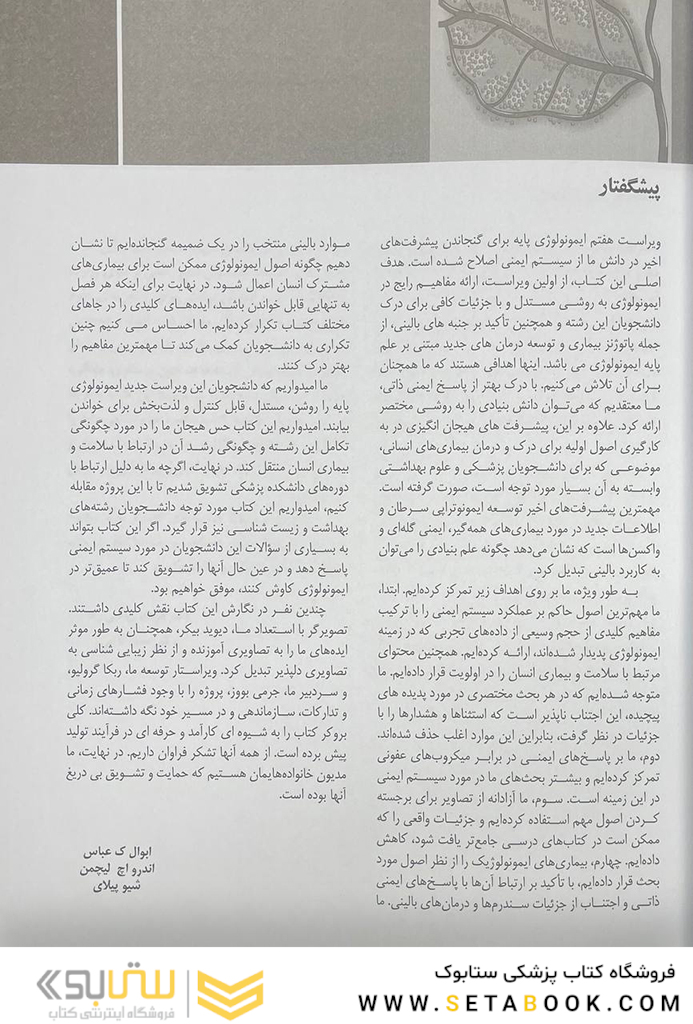 پیشگفتار
ویراست هفتم ایمونولوژی پایه برای گنجاندن پیشرفت‌های
اخیر در دانش ما از سیستم ایمنی اصلاح شده است. هدف
اصلی این کتاب، از اولین ویراست، ارائه مفاهیم رایج در
ایمونولوژی به روشی مستدل و با جزئیات کافی برای درک
دانشجویان این رشته و همچنین تأکید بر جنبه های بالینی، از
جمله پاتوژنز بیماری و توسعه درمان های جدید مبتنی بر علم
پایه ایمونولوژی می باشد. اینها اهدافی هستند که ما همچنان
برای آن تلاش می‌کنیم. با درک بهتر از پاسخ ایمنی ذاتی،
ما معتقدیم که می‌توان دانش بنیادی را به روشی مختصر
ارائه کرد. علاوه بر این، پیشرفت های هیجان انگیزی در به
کارگیری اصول اولیه برای درک و درمان بیماری‌های انسانی،
موضوعی که برای دانشجویان پزشکی و علوم بهداشتی
وابسته به آن بسیار مورد توجه است، صورت گرفته است.
مهمترین پیشرفت‌های اخیر توسعه ایمونوتراپی سرطان و
اطلاعات جدید در مورد بیماری‌های همه‌گیر، ایمنی گله‌ای و
واکسن‌ها است که نشان می‌دهد چگونه علم بنیادی را می‌توان
به کاربرد بالینی تبدیل کرد.
به طور ویژه، ما بر روی اهداف زیر تمرکز کرده‌ایم. ابتدا،
ما مهم‌ترین اصول حاکم بر عملکرد سیستم ایمنی را با ترکیب
مفاهیم کلیدی از حجم وسیعی از داده‌های تجربی که در زمینه
ایمونولوژی پدیدار شده‌اند، ارائه کرده‌ایم. همچنین محتوای
مرتبط با سلامت و بیماری انسان را در اولویت قرار داده‌ایم. ما
متوجه شده‌ایم که در هر بحث مختصری در مورد پدیده های
پیچیده، این اجتناب ناپذیر است که استثناها و هشدارها را با
جزئیات در نظر گرفت، بنابراین این موارد اغلب حذف شده‌اند.
دوم، ما بر پاسخ‌های ایمنی در برابر میکروب‌های عفونی
تمرکز کرده‌ایم و بیشتر بحث‌های ما در مورد سیستم ایمنی
در این زمینه است. سوم، ما آزادانه از تصاویر برای برجسته
کردن اصول مهم استفاده کرده‌ایم و جزئیات واقعی را که
ممکن است در کتاب‌های درسی جامع‌تر یافت شود، کاهش
داده‌ایم. چهارم، بیماری‌های ایمونولوژیک را از نظر اصول مورد
بحث قرار داده‌ایم، با تأکید بر ارتباط آن‌ها با پاسخ‌های ایمنی
ذاتی و اجتناب از جزئیات سندرم‌ها و درمان‌های بالینی. ما
موارد بالینی منتخب را در یک ضمیمه گنجانده‌ایم تا نشان
دهیم چگونه اصول ایمونولوژی ممکن است برای بیماری‌های
مشترک انسان اعمال شود. در نهایت برای اینکه هر فصل
به تنهایی قابل خواندن باشد، ایده‌های کلیدی را در جاهای
مختلف کتاب تکرار کرده‌ایم. ما احساس می کنیم چنین
تکراری به دانشجویان کمک می‌کند تا مهمترین مفاهیم را
بهتر درک کنند.
ما امیدواریم که دانشجویان این ویراست جدید ایمونولوژی
پایه را روشن، مستدل، قابل کنترل و لذت‌بخش برای خواندن
بیابند. امیدواریم این کتاب حس هیجان ما را در مورد چگونگی
تکامل این رشته و چگونگی رشد آن در ارتباط با سلامت و
بیماری انسان منتقل کند. در نهایت، اگرچه ما به دلیل ارتباط با
دوره‌های دانشکده پزشکی تشویق شدیم تا با این پروژه مقابله
کنیم، امیدواریم این کتاب مورد توجه دانشجویان رشته‌های
بهداشت و زیست شناسی نیز قرار گیرد. اگر این کتاب بتواند
به بسیاری از سؤالات این دانشجویان در مورد سیستم ایمنی
پاسخ دهد و در عین حال آنها را تشویق کند تا عمیق‌تر در
ایمونولوژی کاوش کنند، موفق خواهیم بود.
چندین نفر در نگارش این کتاب نقش کلیدی داشتند.
تصویرگر با استعداد ما، دیوید بیکر، همچنان به طور موثر
ایده‌های ما را به تصاویری آموزنده و از نظر زیبایی شناسی به
تصاویری دلپذیر تبدیل کرد. ویراستار توسعه ما، ربکا گرولیو،
و سردبیر ما، جرمی بووز، پروژه را با وجود فشارهای زمانی
و تدارکات، سازماندهی و در مسیر خود نگه داشته‌اند. کلی
بروکر کتاب را به شیوه ای کارآمد و حرفه ای در فرآیند تولید
پیش برده است. از همه آنها تشکر فراوان داریم. در نهایت، ما
مدیون خانواده‌هایمان هستیم که حمایت و تشویق بی دریغ
آنها بوده است.
ابوال ک عباس
اندرو اچ لیچمن
شیو پیلای
فروشگاه کتاب پزشکی ستابوک
WWW.SETABOOK.COM
ستابوک
فروشگاه اینترنتی کتاب